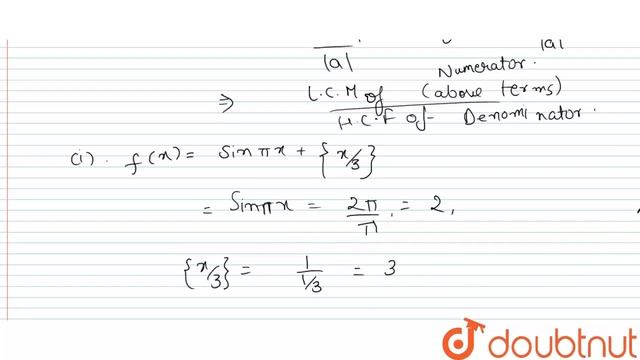 |a| |a|
Numerator.
⇒ L.C.M of (above terms)
H.C.F of Denominator.
(i). f(x) = Sin πx + {x/3}
= Sin πx = 2π/π = 2,
{x/3} = 1/1/3 = 3
doubtnut